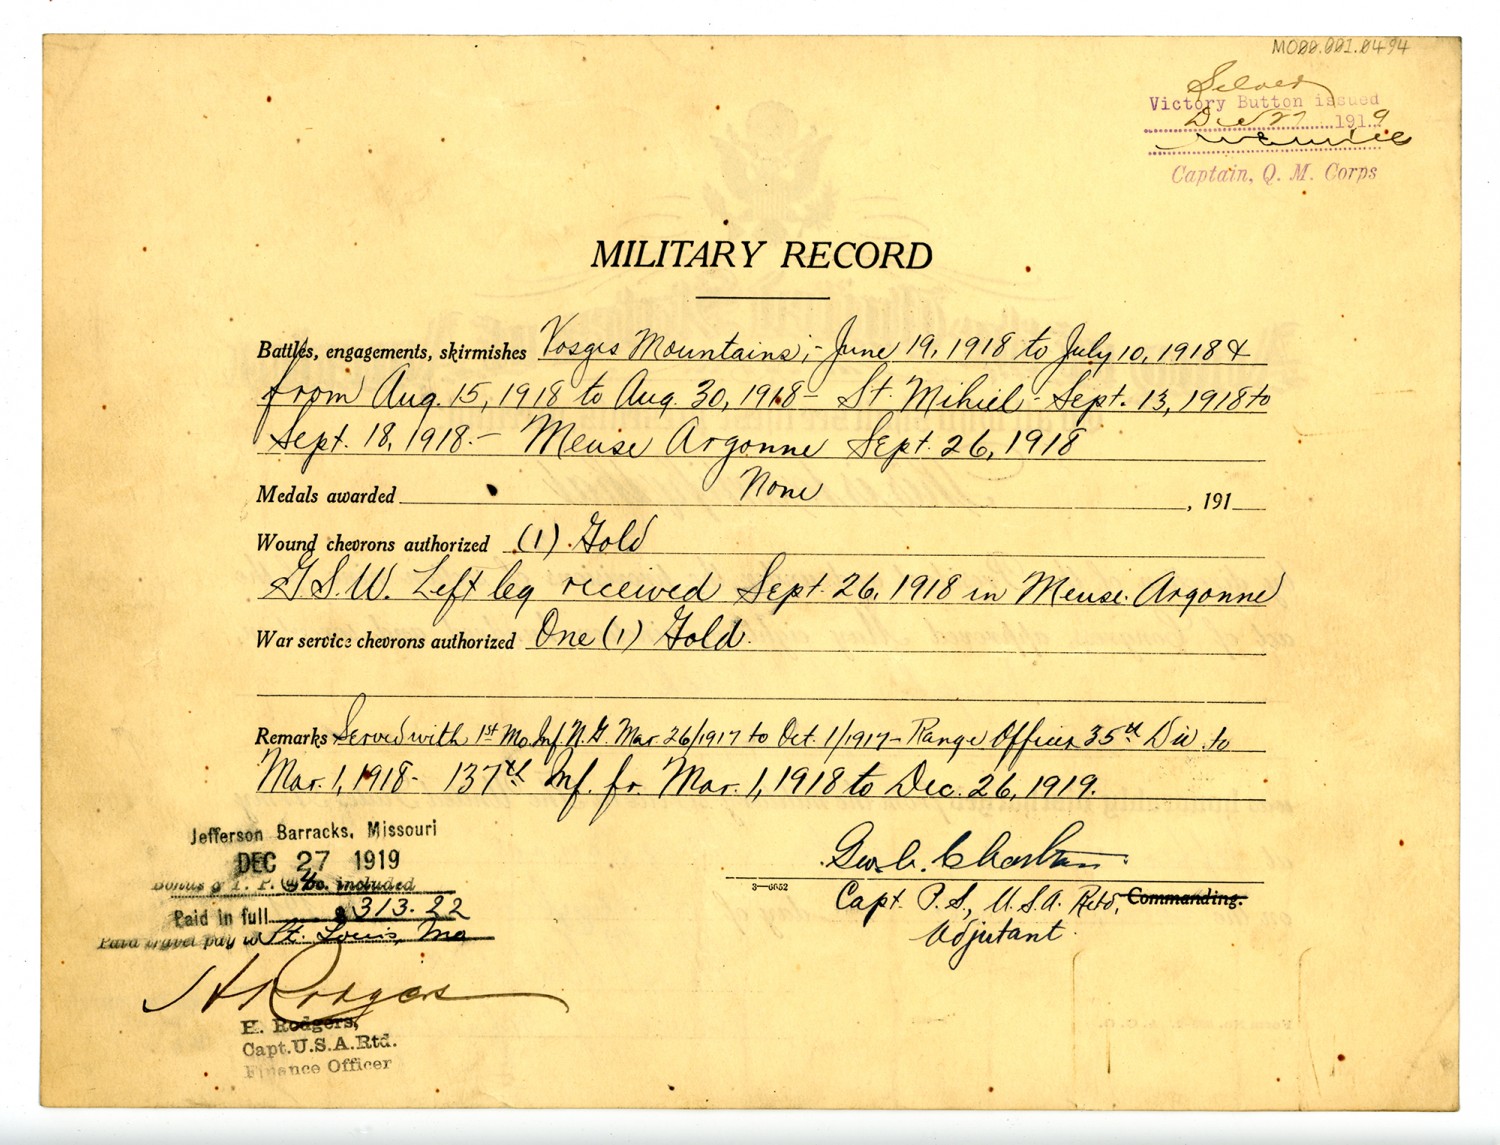 MO00.001.0494
Silver
Victory Button issued
Dec 27 1919
Captain, Q. M. Corps
MILITARY RECORD
Battles, engagements, skirmishes Vosges Mountains; - June 19, 1918 to July 10, 1918 &
from Aug. 15, 1918 to Aug. 30, 1918 - St. Mihiel - Sept. 13, 1918 to
Sept. 18, 1918. - Meuse Argonne Sept. 26, 1918
Medals awarded None , 191
Wound chevrons authorized (1) Gold
G.S.W. Left leg received Sept. 26, 1918 in Meuse. Argonne
War service chevrons authorized One (1) Gold.
Remarks Served with 1st Mo. Inf. N.G. Mar. 26/1917 to Oct. 1/1917 - Range Officer 35th Div. to
Mar. 1, 1918 - 137th Inf. fr. Mar. 1, 1918 to Dec. 26, 1919.
Jefferson Barracks, Missouri
DEC 27 1919
Bonus $60. included
Paid in full $313.22
Paid travel pay to St. Louis, Mo
H Rodgers
H. Rodgers,
Capt. U.S.A. Rtd.
Finance Officer
Geo. C.
3—6652
Capt. P.S., U.S.A. Retd, Commanding.
Adjutant.